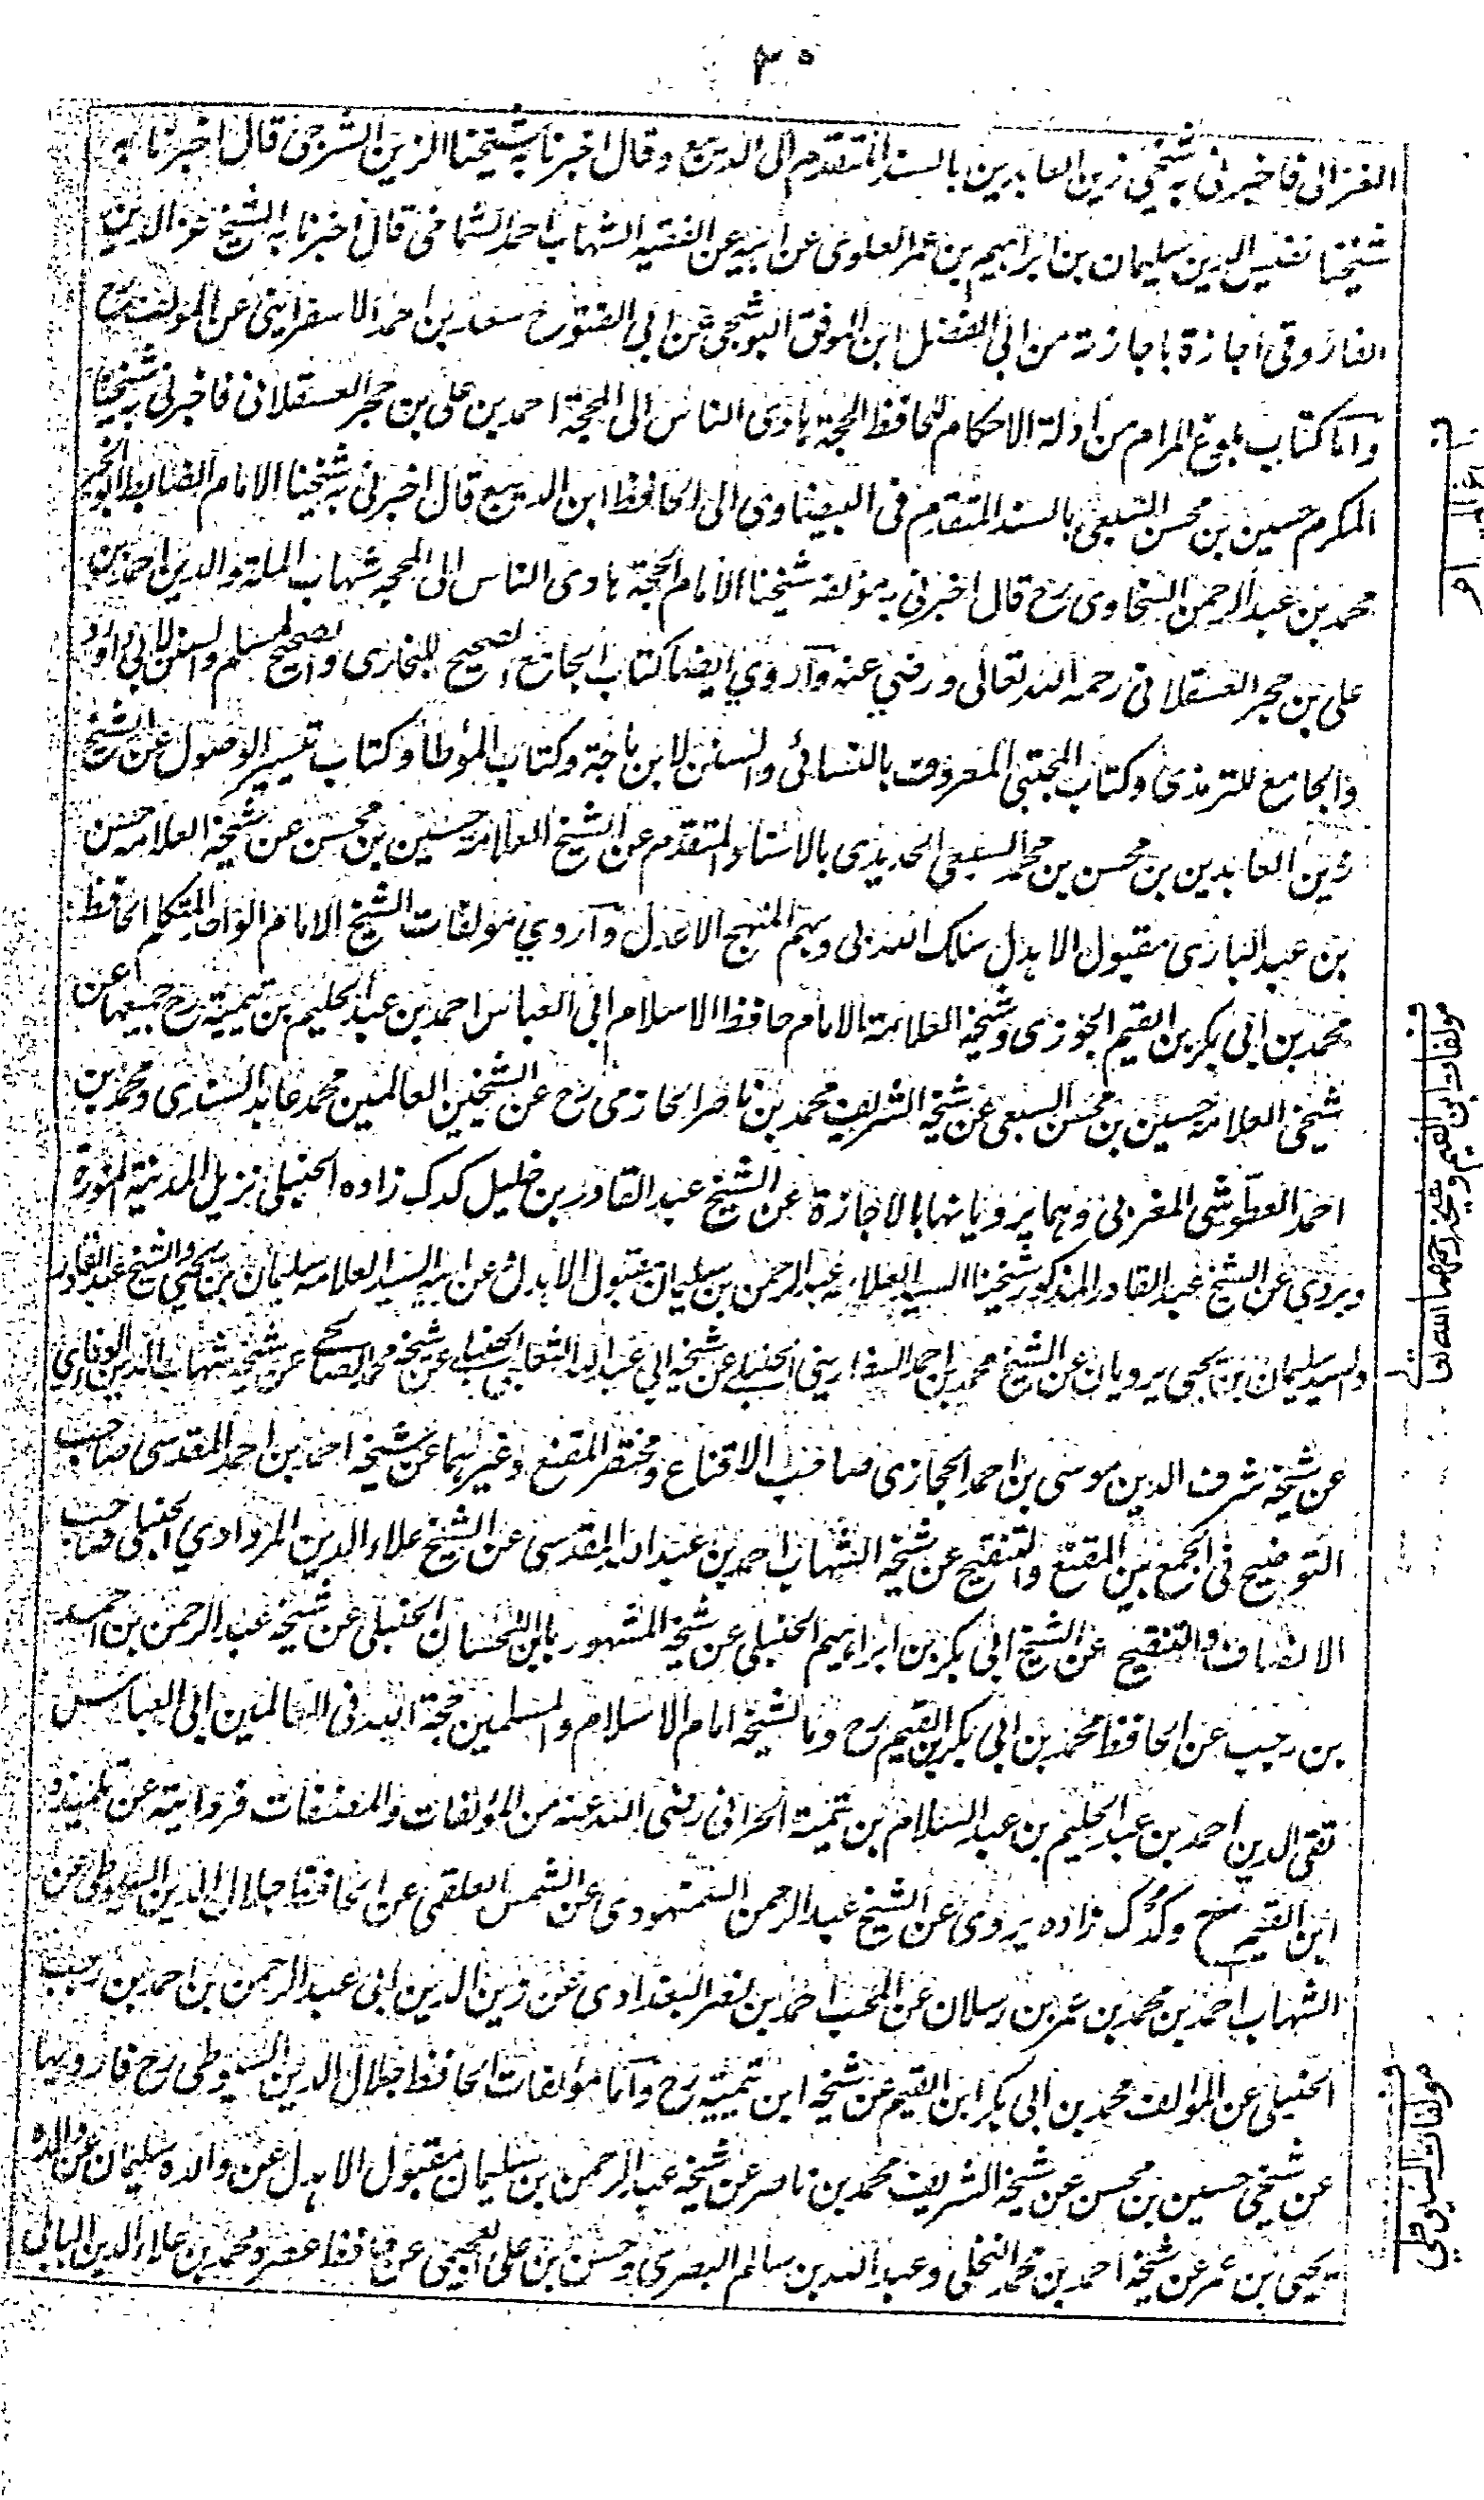 ٣٠
الغزالی فاخبرنی به شیخی زین العابدین بالسند المتقدم الی الدیبع وقال اخبرنا به شیخنا الزین الشرجی قال اخبرنا به
شیخنا نفیس الدین سلیمان بن ابراهیم بن عمر العلوی عن ابیه عن الفقیه الشهاب احمد الشماخی قال اخبرنا به الشیخ عز الدین
الفاروقی اجازة باجازته من ابی الفضل ابن الموفق البوشجی عن ابی الفتوح سعد بن احمد الاسفراینی عن المؤلف رح
واما کتاب بلوغ المرام من ادلة الاحکام للحافظ الحجة هادی الناس الی المحجة احمد بن علی بن حجر العسقلانی فاخبرنی به شیخنا
المکرم حسین بن محسن السبعی بالسند المتقدم فی البیضاوی الی الحافظ ابن الدیبع قال اخبرنی به شیخنا الامام الضابط ابو الخیر
محمد بن عبد الرحمن السخاوی رح قال اخبرنی به مؤلفه شیخنا الامام الحجة هادی الناس الی المحجة شهاب الملة والدین احمد بن
علی بن حجر العسقلانی رحمه الله تعالی ورضی عنه وآروی ایضا کتاب الجامع الصحیح للبخاری والصحیح لمسلم والسنن لابی داود
والجامع للترمذی وکتاب المجتبی المعروف بالنسائی والسنن لابن ماجة وکتاب المؤطا وکتاب تیسیر الوصول عن الشیخ
زین العابدین بن محسن بن محمد السبعی الحدیدی بالاسناد المتقدم عن الشیخ العلامة حسین بن محسن عن شیخه العلامه حسن
بن عبد الباری مقبول الاهدل سلک الله بی وبهم المنهج الاعدل وآروی مؤلفات الشیخ الامام الواحد المتکلم الحافظ
محمد بن ابی بکر بن القیم الجوزی وشیخه العلامة الامام حافظ الاسلام ابی العباس احمد بن عبد الحلیم بن تیمیة رح جمیعها عن
شیخی العلامة حسین بن محسن السبعی عن شیخه الشریف محمد بن ناصر الحازمی رح عن الشیخین العالمین محمد عابد السندی ومحمد بن
احمد العطوشی المغربی وهما یرویانها بالاجازة عن الشیخ عبد القادر بن خلیل کدک زاده الحنبلی نزیل المدینة المنورة
ویروی عن الشیخ عبد القادر المذکور شیخنا السید العلامه عبد الرحمن بن سلیمان مقبول الاهدل عن ابیه السید العلامه سلیمان بن یحیی والشیخ عبد القادر
والسید سلیمان بن یحیی یرویان عن الشیخ محمد بن احمد السفارینی الحنبلی عن شیخه ابی عبد الله الحنبلی عن شیخه محمد عن شیخه شهاب الدین الوفایی
عن شیخه شرف الدین موسی بن احمد الحجازی صاحب الاقناع ومختصر المقنع وغیرهما عن شیخه احمد بن احمد المقدسی صاحب
التوضیح فی الجمع بین المقنع والتنقیح عن شیخه الشهاب احمد بن عبد الله المقدسی عن الشیخ علاء الدین المرداوی الحنبلی صاحب
الانصاف والتنقیح عن الشیخ ابی بکر بن ابراهیم الحنبلی عن شیخه المشهور بابن اللحسان الحنبلی عن شیخه عبد الرحمن بن احمد
بن رجب عن الحافظ محمد بن ابی بکر بن القیم رح وما لشیخه امام الاسلام والمسلمین حجة الله فی العالمین ابی العباس
تقی الدین احمد بن عبد الحلیم بن عبد السلام بن تیمیة الحرانی رضی الله عنه من المؤلفات والمصنفات فروایته عن تلمیذه
ابن القیم رح وکدک زاده یروی عن الشیخ عبد الرحمن السمنهودی عن الشمس العلقمی عن الحافظ جلال الدین السیوطی عن
الشهاب احمد بن محمد بن عمر بن رسلان عن المحب احمد بن نصر البغدادی عن زین الدین ابی عبد الرحمن بن احمد بن رجب
الحنبلی عن المؤلف محمد بن ابی بکر ابن القیم عن شیخه ابن تیمیة رح وآما مؤلفات الحافظ جلال الدین السیوطی رح فارویها
عن شیخی حسین بن محسن عن شیخه الشریف محمد بن ناصر عن شیخه عبد الرحمن بن سلیمان مقبول الاهدل عن والده سلیمان عن والده
یحیی بن عمر عن شیخه احمد بن محمد النخلی وعبد الله بن سالم البصری وحسن بن علی العجیمی عن حافظ عصره محمد بن علاء الدین البابلی
مؤلفات ابن القیم وشیخه رحمهما الله تعا
مؤلفات السیوطی